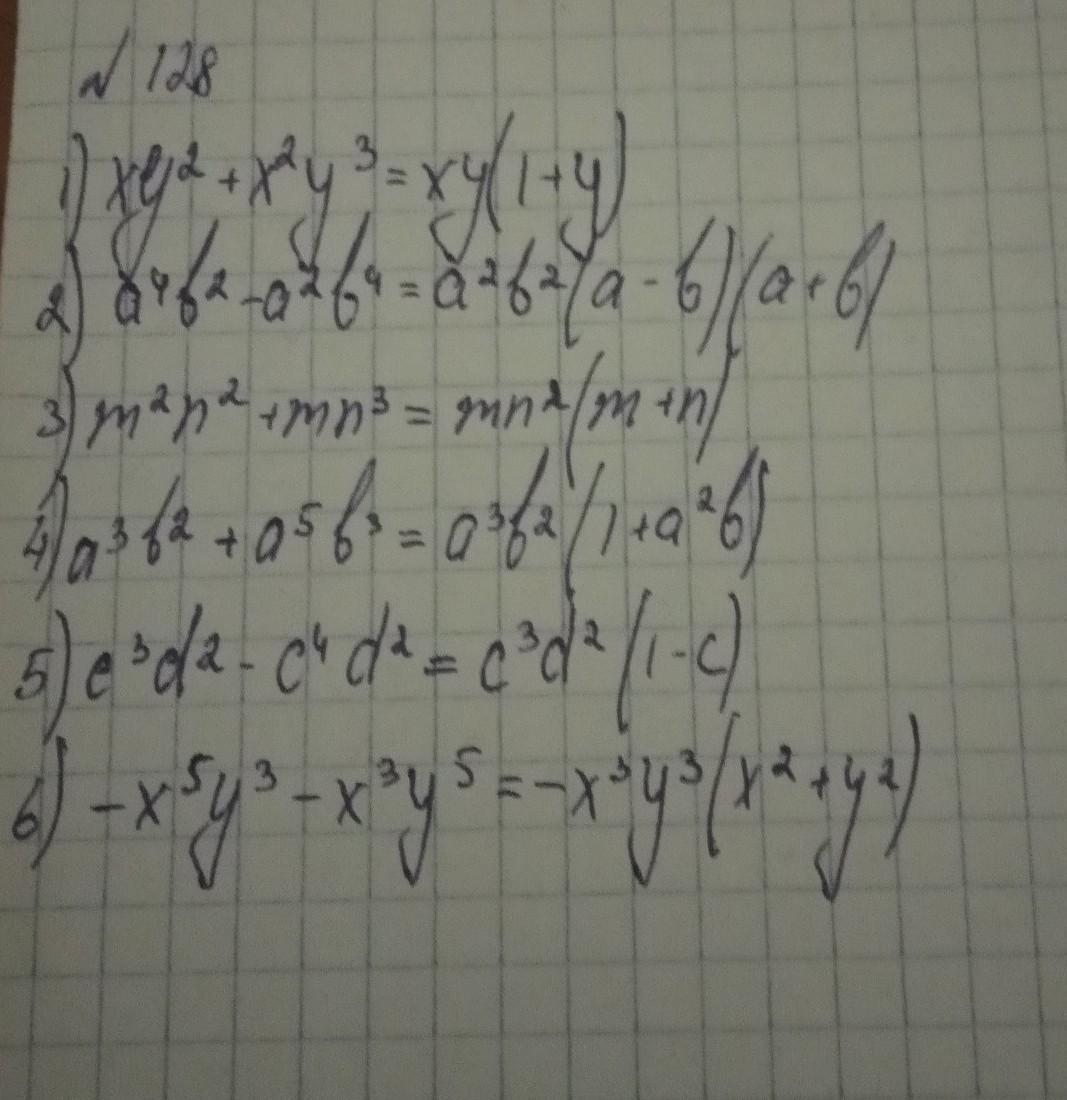 № 128
1) xy² + x²y³ = xy(1+y)
2) a⁴b² - a²b⁴ = a²b²(a - b)(a + b)
3) m²n² + mn³ = mn²(m + n)
4) a³b² + a⁵b³ = a³b²(1 + a²b)
5) c³d² - c⁴d² = c³d²(1 - c)
6) -x⁵y³ - x³y⁵ = -x³y³(x² + y²)